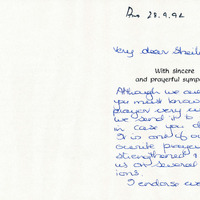 28.9.92
Very dear Sheil
With sincere
and prayerful symp
Although we are
you must know
prayer very
we send it to
in case you d
It is one of ou
ourite prayer
strengthened
us on several
ions.
I endorse eve